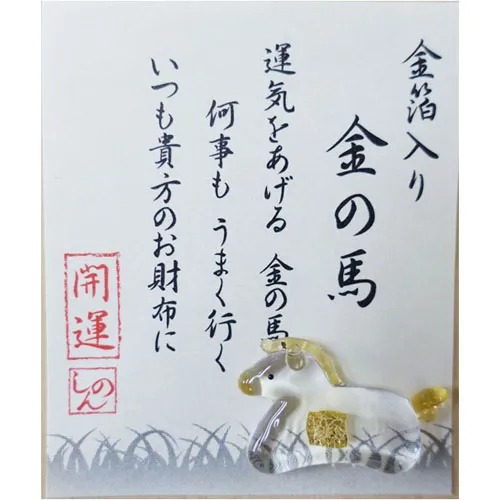 金箔入り
金の馬
運気をあげる 金の馬
何事も うまく行く
いつも貴方のお財布に
開運
しんの